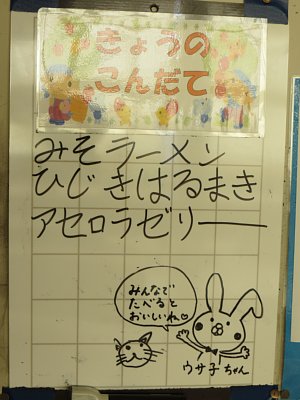 きょうの
こんだて
みそラーメン
ひじきはるまき
アセロラゼリー
みんなで
たべると
おいしいね♡
ウサ子ちゃん